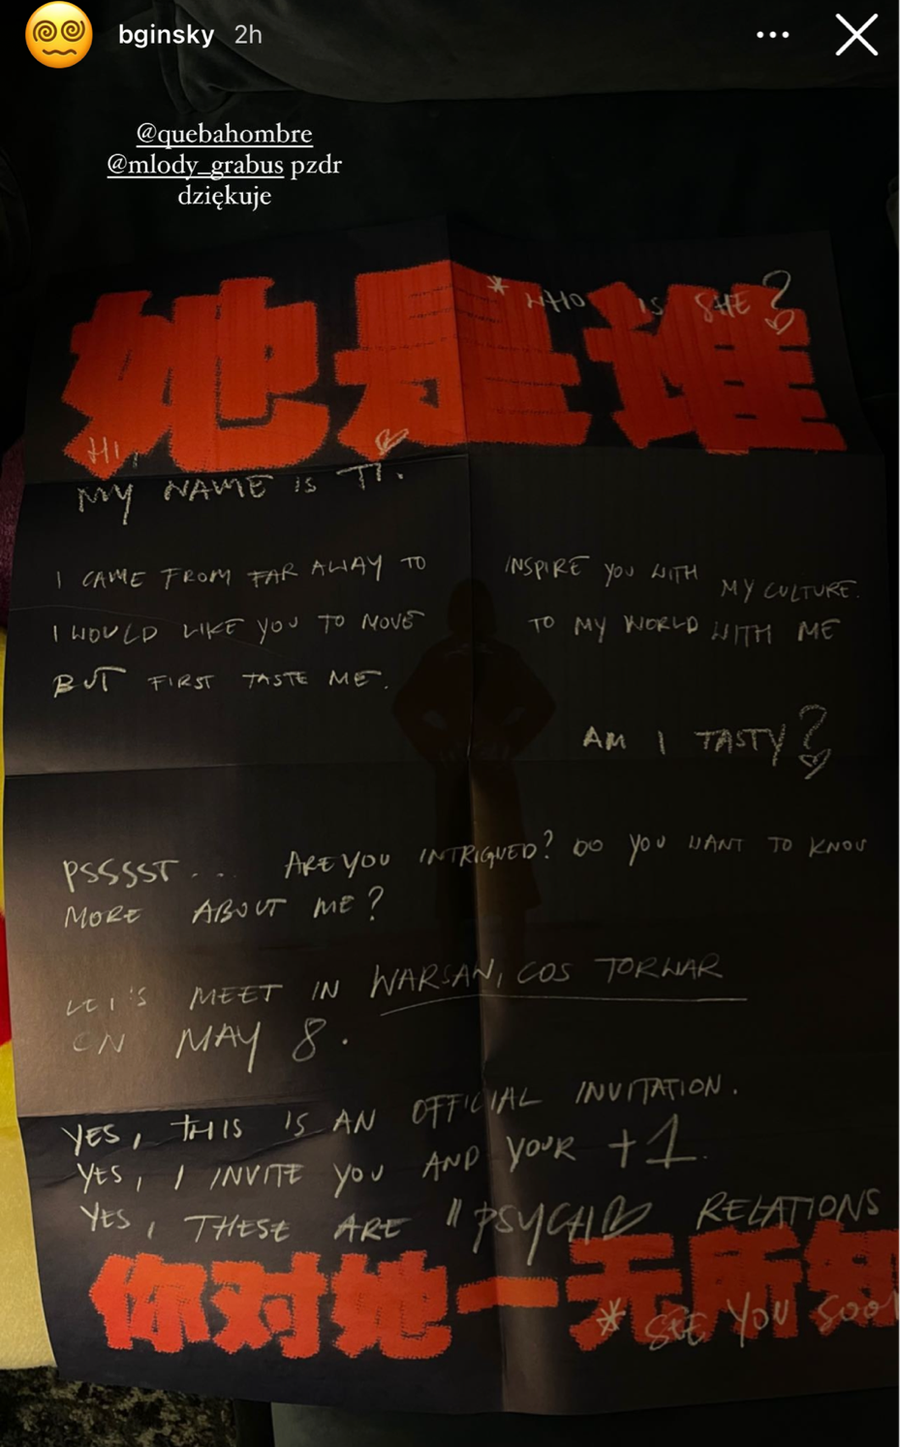 bginsky 2h
@quebahombre
@mlody_grabus pzdr
dziękuje
她是谁
* WHO IS SHE?
HI,
MY NAME IS TI.
I CAME FROM FAR AWAY TO INSPIRE YOU WITH MY CULTURE.
I WOULD LIKE YOU TO MOVE TO MY WORLD WITH ME
BUT FIRST TASTE ME.
AM I TASTY?
PSSSST... ARE YOU INTRIGUED? DO YOU WANT TO KNOW
MORE ABOUT ME?
LET'S MEET IN WARSAW, COS TORWAR
ON MAY 8.
YES, THIS IS AN OFFICIAL INVITATION.
YES, I INVITE YOU AND YOUR +1.
YES, THESE ARE "PSYCHO RELATIONS
你对她一无所知
* SEE YOU SOON